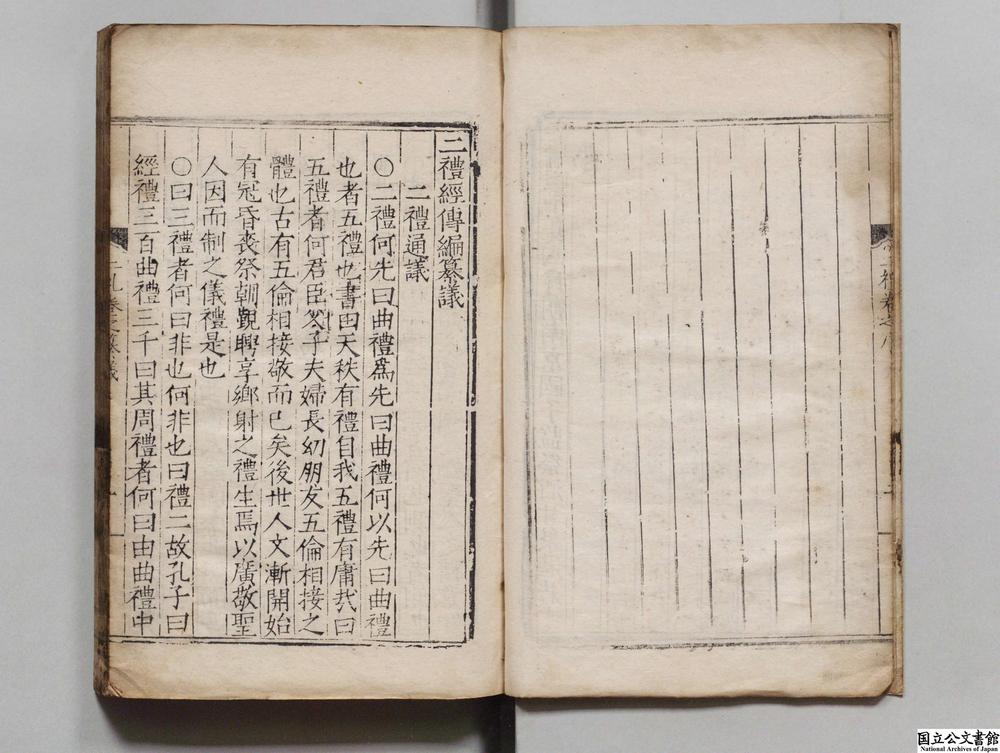 二禮經傳編纂議
二禮通議
〇二禮何先曰曲禮爲先曰曲禮何以先曰曲禮
也者五禮也書曰天秩有禮自我五禮有庸哉曰
五禮者何君臣父子夫婦長幼朋友五倫相接之
體也古有五倫相接敬而已矣後世人文漸開始
有冠昏喪祭朝覲聘享鄉射之禮生焉以廣敬聖
人因而制之儀禮是也
〇曰三禮者何曰非也何非也曰禮二故孔子曰
經禮三百曲禮三千曰其周禮者何曰由曲禮中
禮卷之八
国立公文書館
National Archives of Japan